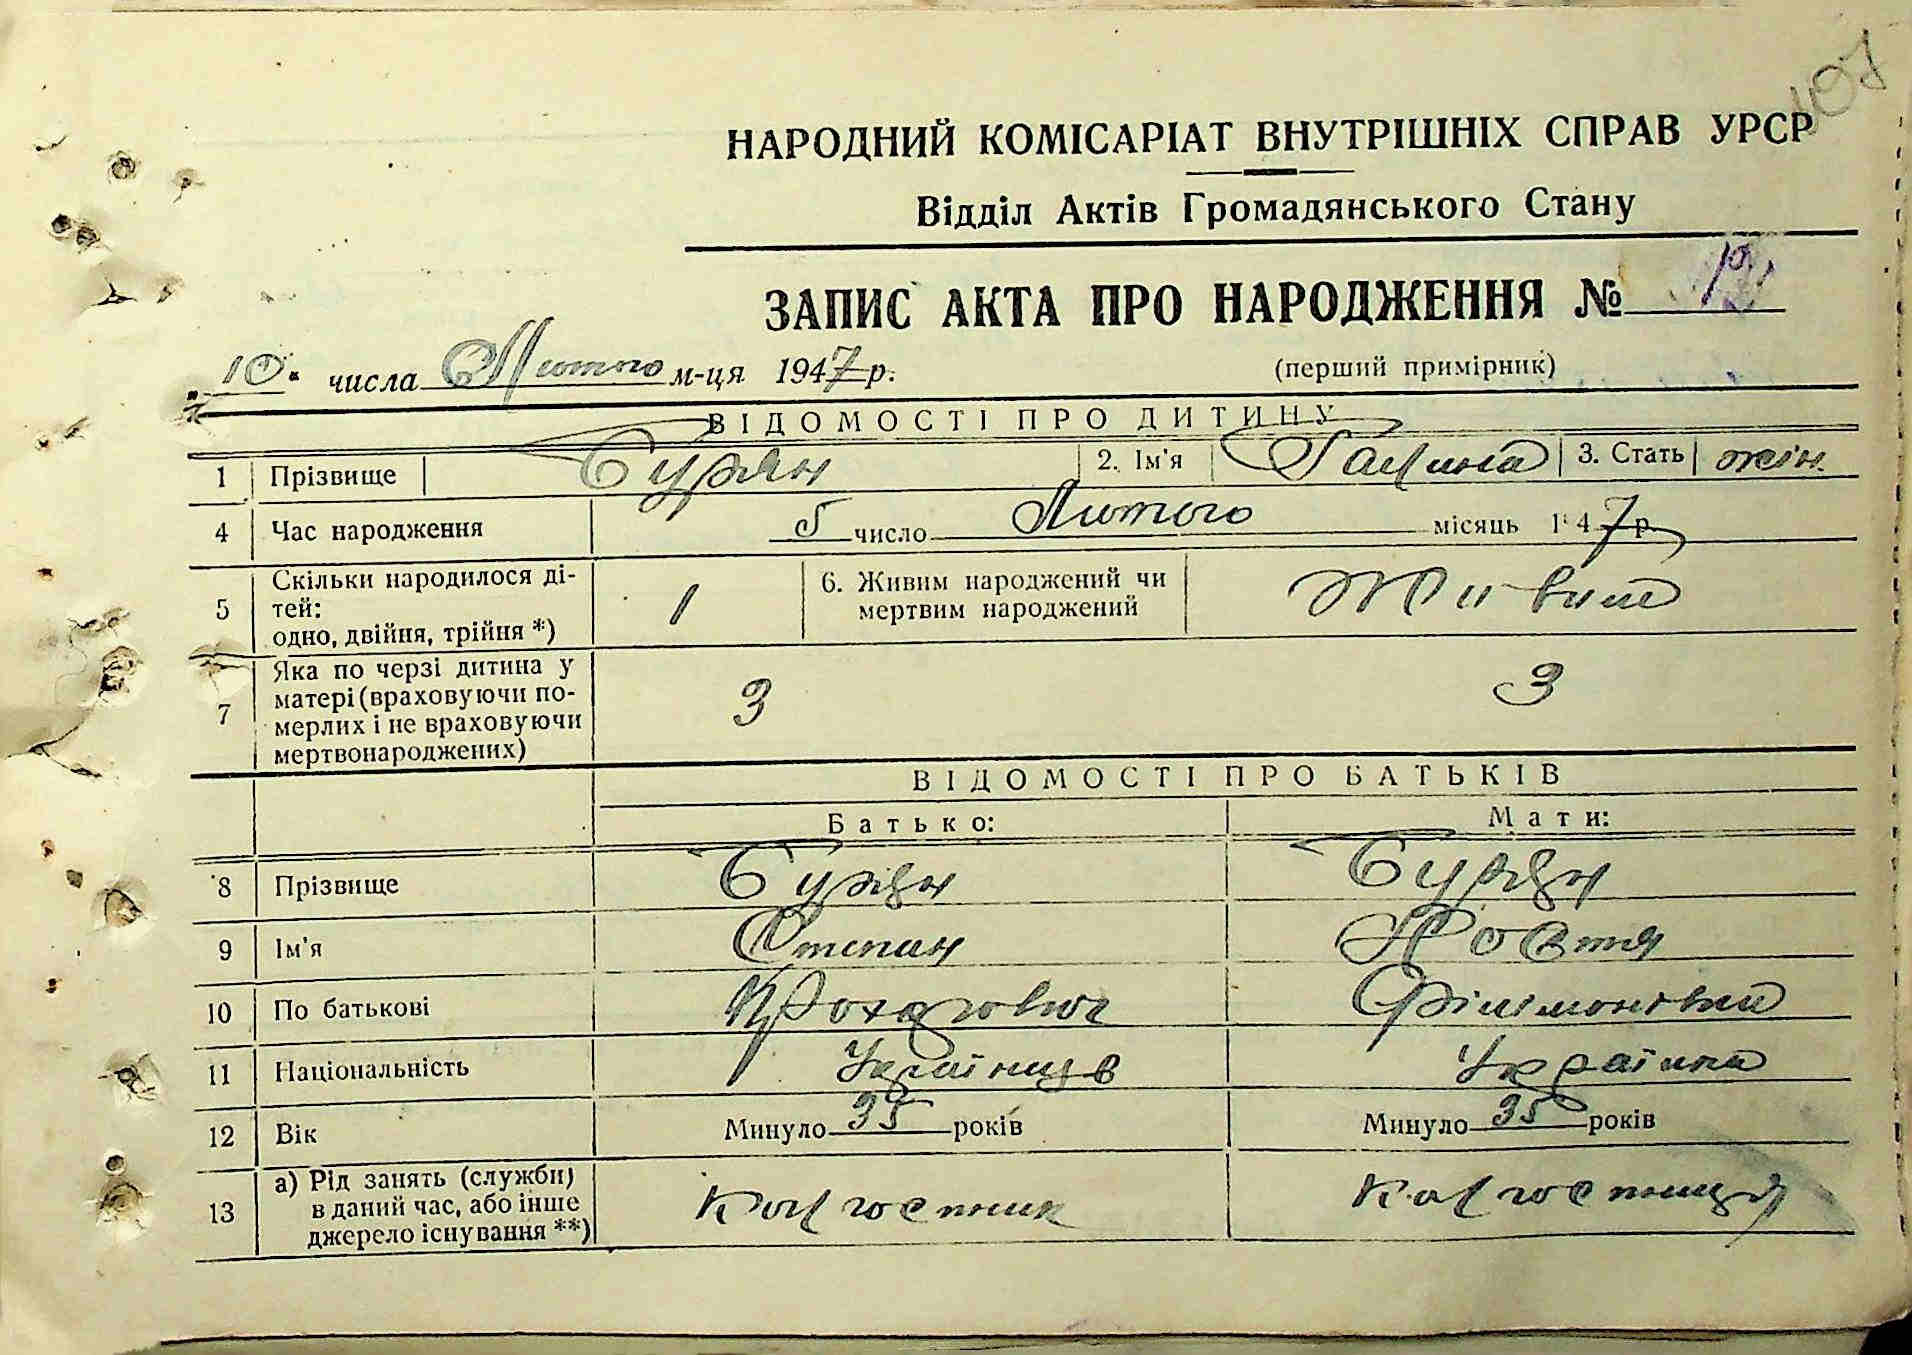 107
НАРОДНИЙ КОМІСАРІАТ ВНУТРІШНІХ СПРАВ УРСР
Відділ Актів Громадянського Стану
ЗАПИС АКТА ПРО НАРОДЖЕННЯ №
„10“ числа Лютого м-ця 1947 р. (перший примірник)
ВІДОМОСТІ ПРО ДИТИНУ
1 Прізвище Бурян 2. Ім'я Галина 3. Стать жін.
4 Час народження 5 число Лютого місяць 1947 р.
5 Скільки народилося ді-
тей:
одно, двійня, трійня *) 1 6. Живим народжений чи
мертвим народжений Живим
7 Яка по черзі дитина у
матері (враховуючи по-
мерлих і не враховуючи
мертвонароджених) 3 3
ВІДОМОСТІ ПРО БАТЬКІВ
Батько: Мати:
8 Прізвище Бурян Бурян
9 Ім'я Степан Явтя
10 По батькові Філімоновна
11 Національність Українців Українка
12 Вік Минуло 35 років Минуло 35 років
13 а) Рід занять (служби)
в даний час, або інше
джерело існування **) Колгоспник Колгоспниця